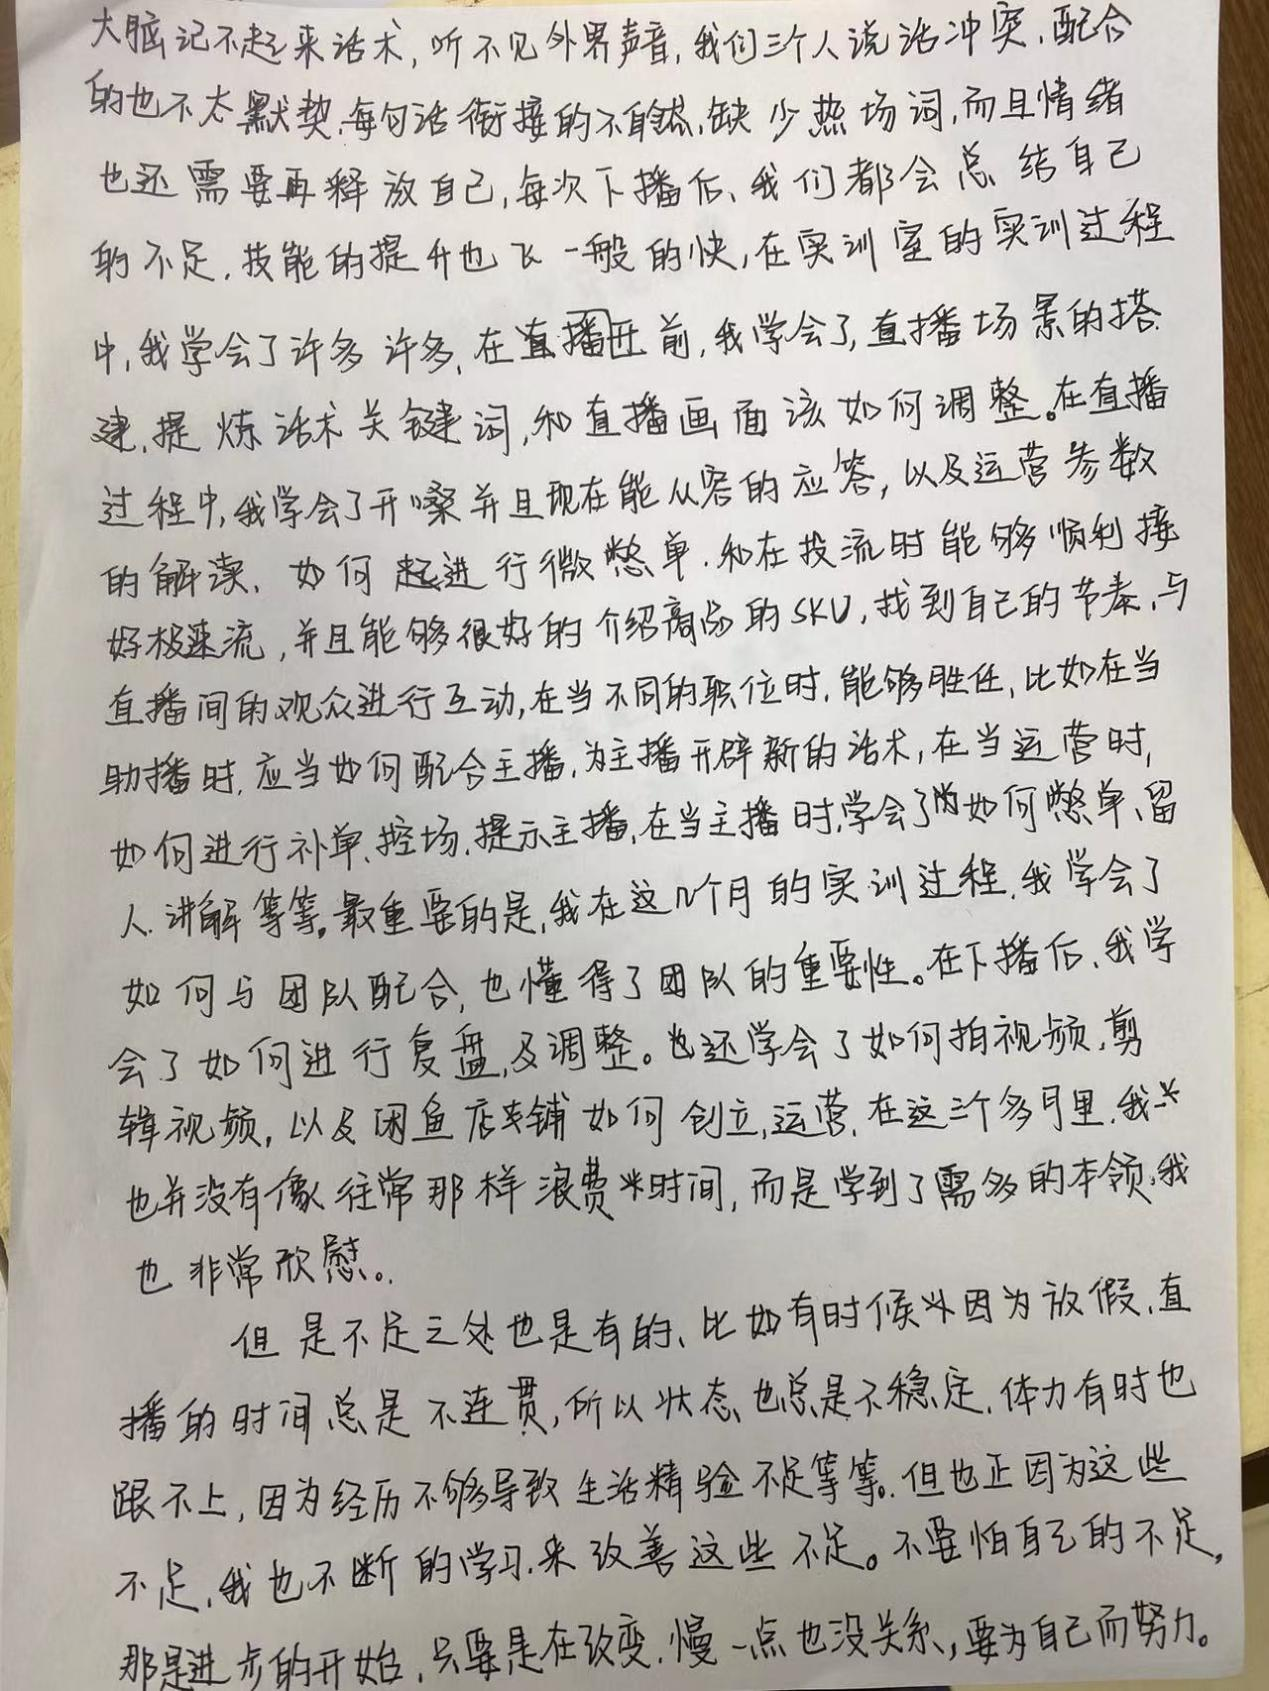 大脑记不起来话术,听不见外界声音,我们三个人说话冲突、配合
的也不太默契、每句话衔接的不自然、缺少热场词,而且情绪
也还需要再释放自己,每次下播后、我们都会总结自己
的不足,技能的提升也飞一般的快,在实训室的实训过程
中,我学会了许多许多,在直播开前,我学会了,直播场景的搭
建,提炼话术关键词,和直播画面该如何调整。在直播
过程中,我学会了开嗓并且现在能从容的应答,以及运营参数
的解读、如何起进行微憋单.和在投流时能够顺利接
好极速流,并且能够很好的介绍商品的SKU,找到自己的节奏,与
直播间的观众进行互动,在当不同的职位时,能够胜任,比如在当
助播时,应当如何配合主播,为主播开辟新的话术,在当运营时,
如何进行补单、控场、提示主播,在当主播时,学会了如何憋单、留
人、讲解等等。最重要的是,我在这几个月的实训过程,我学会了
如何与团队配合,也懂得了团队的重要性。在下播后、我学
会了如何进行复盘,及调整。也还学会了如何拍视频,剪
辑视频,以及闲鱼店铺如何创立,运营,在这三个多月里,我
也并没有像往常那样浪费时间,而是学到了需多的本领,我
也非常欣慰。
但是不足之处也是有的、比如有时候因为放假,直
播的时间总是不连贯,所以状态也总是不稳定,体力有时也
跟不上,因为经历不够导致生活精验不足等等。但也正因为这些
不足,我也不断的学习.来改善这些不足。不要怕自己的不足,
那是进步的开始,只要是在改变,慢一点也没关系,要为自己而努力。